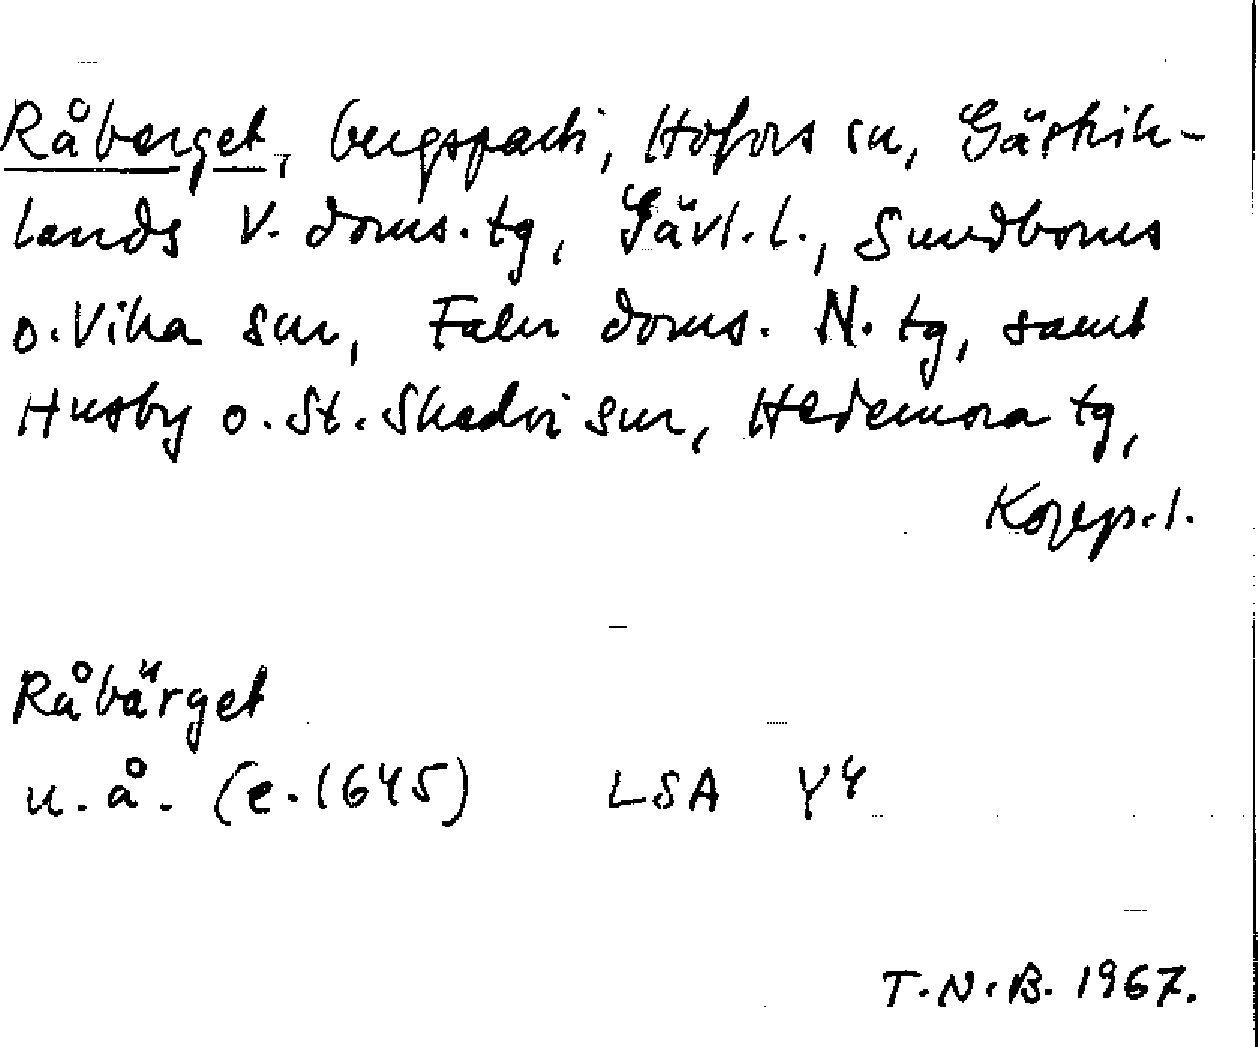 Råberget, bergsparti, Hofors sn, Gästrik-
lands V. doms. tg, Gävl. l., Sundborns
o. Vika snr, Falu doms. N. tg, samt
Husby o. St. Skedvi snr, Hedemora tg,
Kopp. l.
Råbärget
u. å. (e. 1645) LSA Y4
T.N.B. 1967.